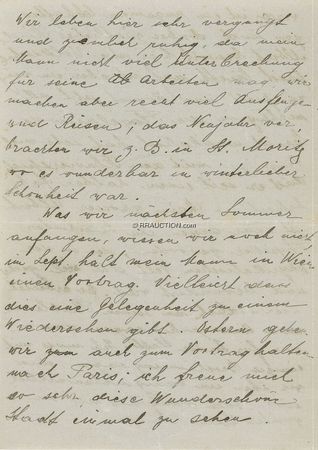 Wir leben hier sehr vergnügt
und ziemlich ruhig, da mein
Mann nicht viel Unterbrechung
für seine Arbeiten mag, wir
machen aber recht viel Ausflüge
und Reisen; das Neujahr ver,
brachten wir z. B. in St. Moritz
wo es wunderbar in winterlicher
Schönheit war.
Was wir nächsten Sommer
© RRAUCTION.COM
anfangen, wissen wir noch nicht,
im Sept. hält mein Mann in Wien
einen Vortrag. Vielleicht dass
dies eine Gelegenheit zu einem
Wiedersehen gibt. Ostern gehen
wir zum auch zum Vortraghalten
nach Paris; ich freue mich
so sehr, diese Wunderschöne
Stadt einmal zu sehen.